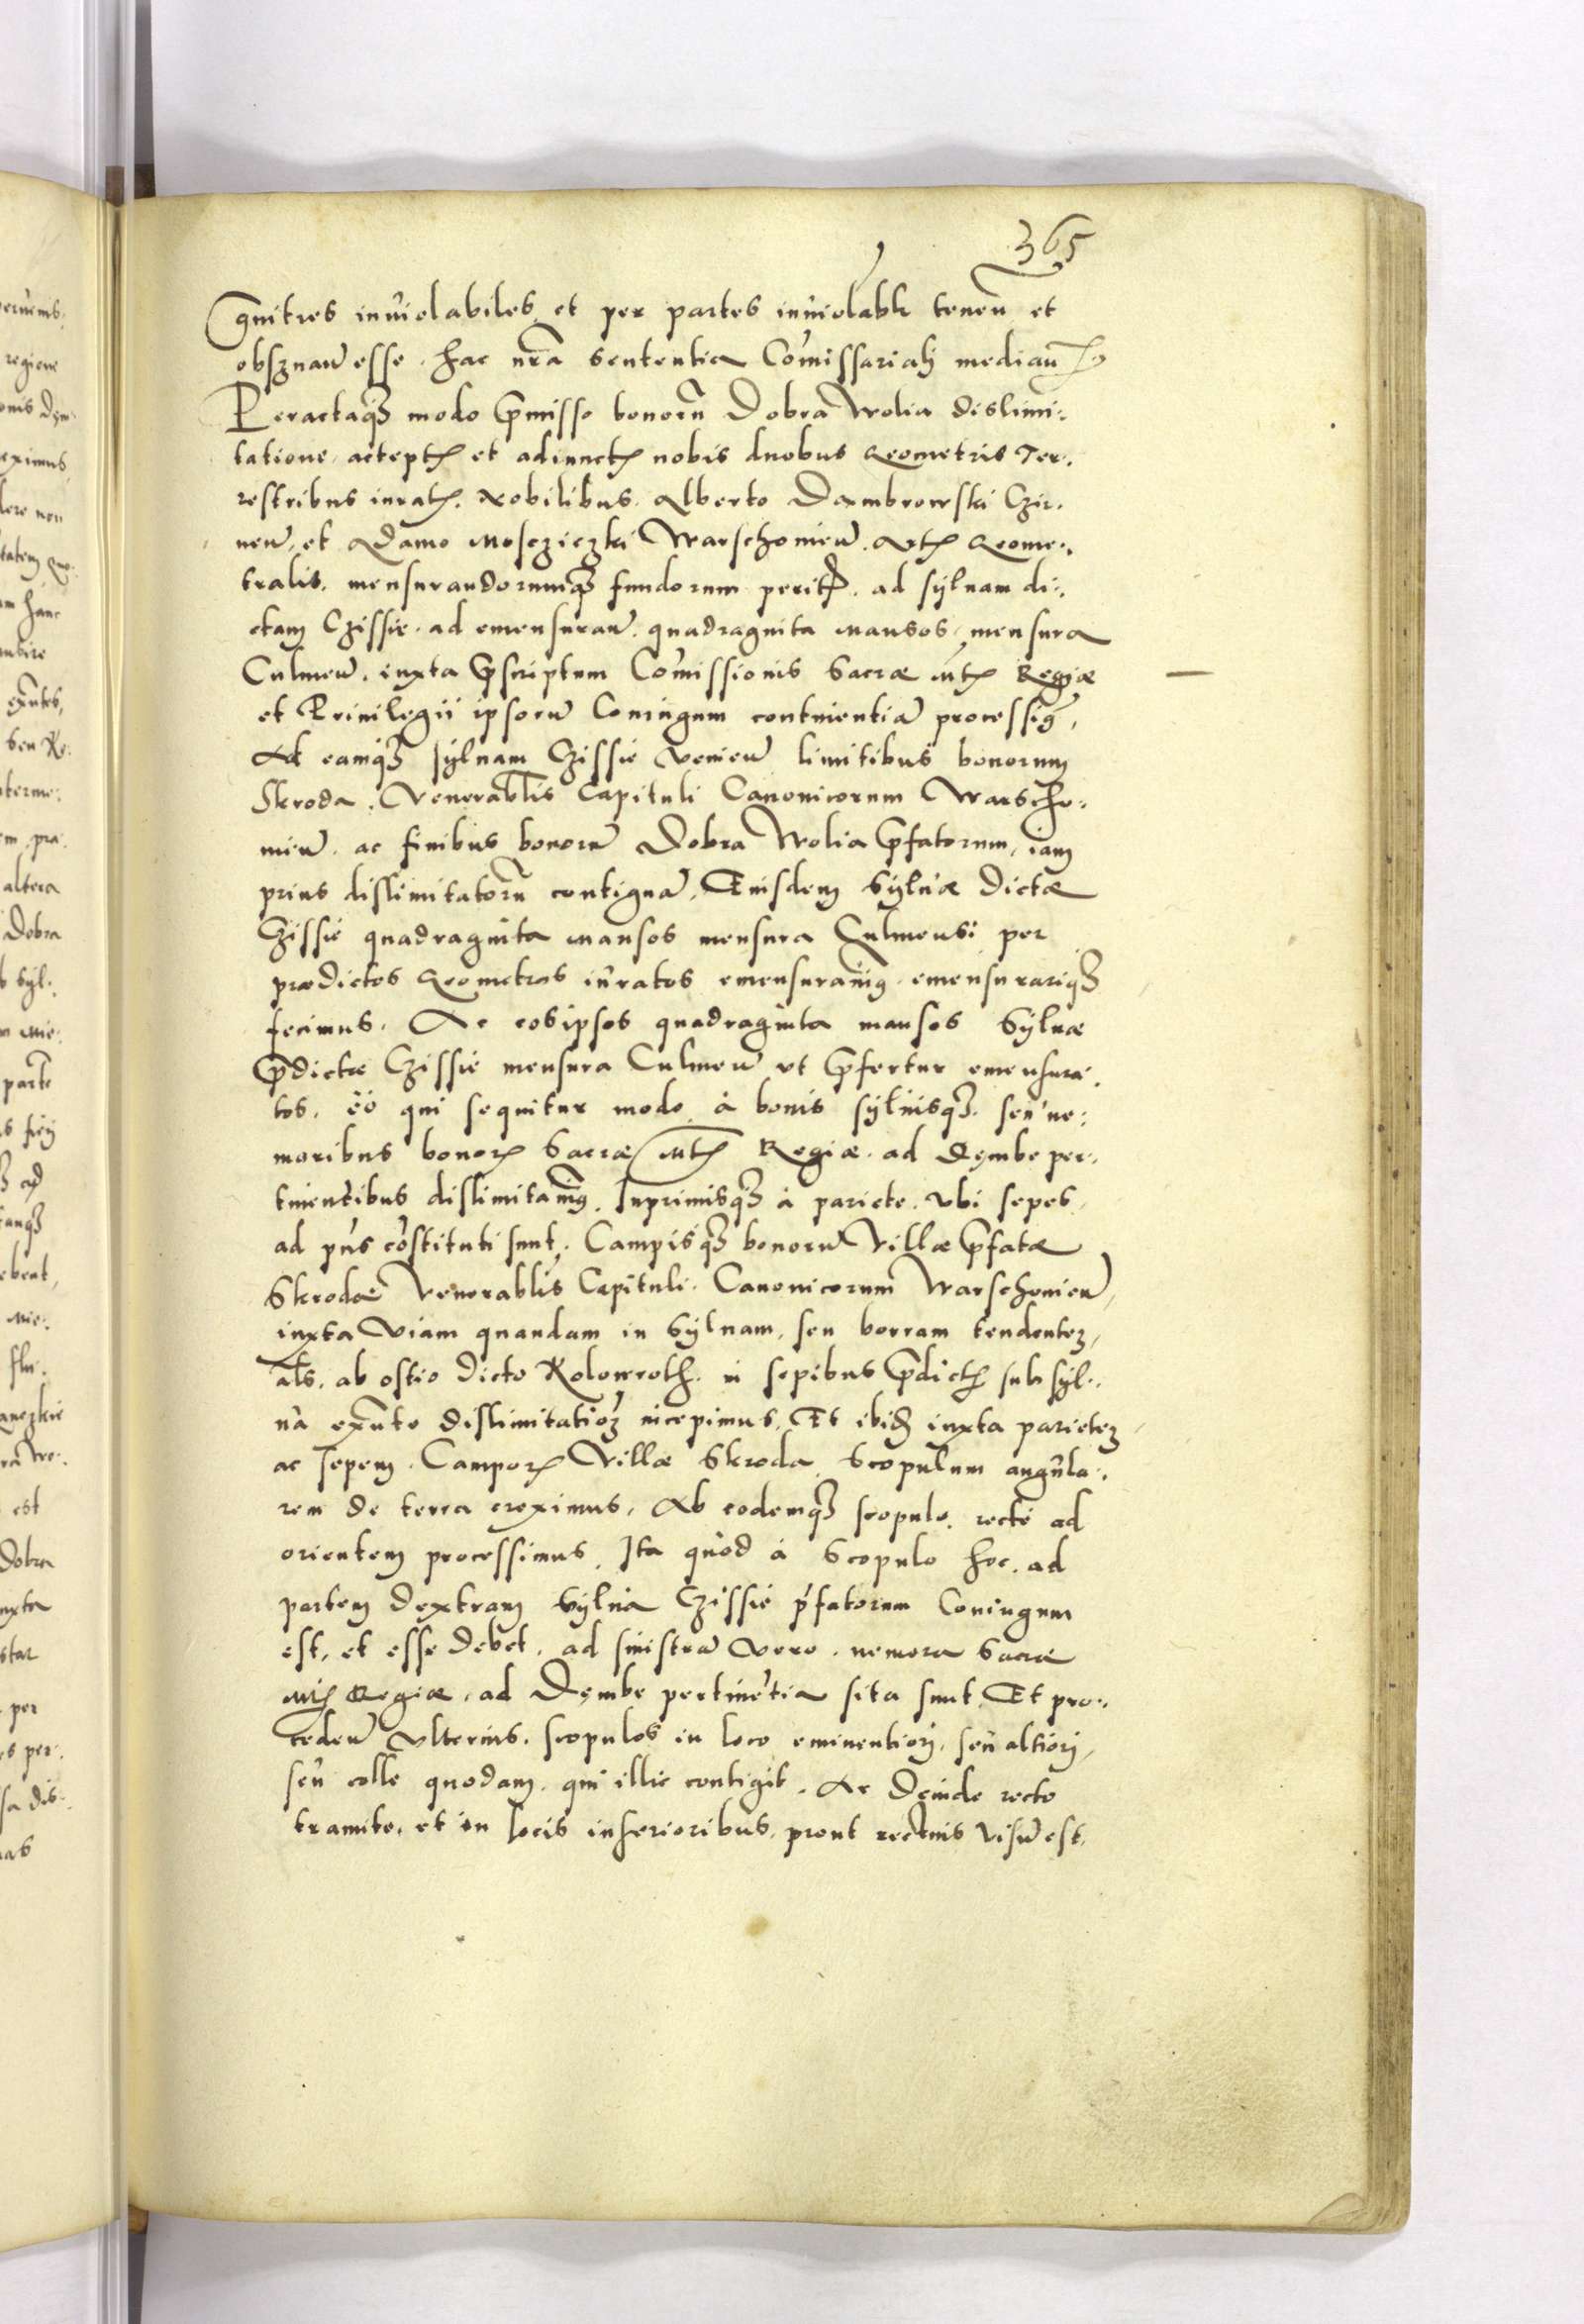 365
gnitres inuiolabiles et per partes inuiolablr tenen̄ et
obsznan̄ esse. hac nr̄a sententia Com̄issariali median̄
Peractaqꝫ modo p̄misso bonorū Dobra Wolia dislimi:
tatione acceptꝭ et adiunctꝭ nobis duobus Geometris Ter:
restribus iuratꝭ. Nobilibus. Alberto Dambrowski Czir:
nen̄. et Adamo Mosczieczki Warschouien̄. Artꝭ Geome:
tralis. mensurandorumqꝫ fundorum peritꝭ. ad syluam di:
ctam Czissie. ad emensuran̄. quadraginta mansos. mensura
Culmen̄. iuxta p̄scriptum Com̄issionis Sacræ Mtꝭ Regiæ
et Priuilegii ipsorū Coniugum continentiā processimꝰ.
Ad eamqꝫ syluam Czissie venien̄ limitibus bonorum
Skroda. Venerablis Capituli Canonicorum Warscho:
uien̄. ac finibus bonorū Dobra Wolia p̄fatorum. iam
prius dislimitatorū contiguā. Eiusdem Syluæ dictæ
Czissie quadraginta mansos mensura Culmensi per
prædictos Geometras iuratos emensurauimꝰ. emensurariqꝫ
fecimus. Ac eos ipsos quadraginta mansos Syluæ
p̄dictæ Czissie mensura Culmen̄ vt p̄fertur emensura:
tos. eo qui sequitur modo à bonis syluisqꝫ. seu ne:
moribus bonorꝭ Sacræ Mtꝭ Regiæ. ad Dęmbe per:
tinentibus dislimitauimꝰ. Inprimisqꝫ à pariete. vbi sepes
ad pn̄s cōstituti sunt. Campisqꝫ bonorū Villæ p̄fatæ
Skroda Venerablis Capituli. Canonicorum Warschouien̄
iuxta viam quandam in Syluam, seu borram tendentem,
als. ab ostio dicto Kolowroth. in sepibus p̄dictꝭ sub syl:
ua exn̄te dislimitationem incepimus. Et ibidem iuxta parietem
ac sepem. Camporꝭ Villæ Skroda. Scopulum angula:
rem de terra ereximus. Ab eodemqꝫ scopulo. recte ad
orientem processimus. Ita quod à Scopulo hoc. ad
partem dextram Sylua Czissie p̄fatorum Coniugum
est, et esse debet. ad sinistrā vero. nemora Sacræ
Mtꝭ Regiæ. ad Dęmbe pertinētia sita sunt. Et pro:
ceden̄ vlterius. scopulos in loco eminentiori, seu altiori,
seu colle quodam. qui illic contigit. Ac deinde recto
tramite. et in locis inferioribus. prout rectius visū est.